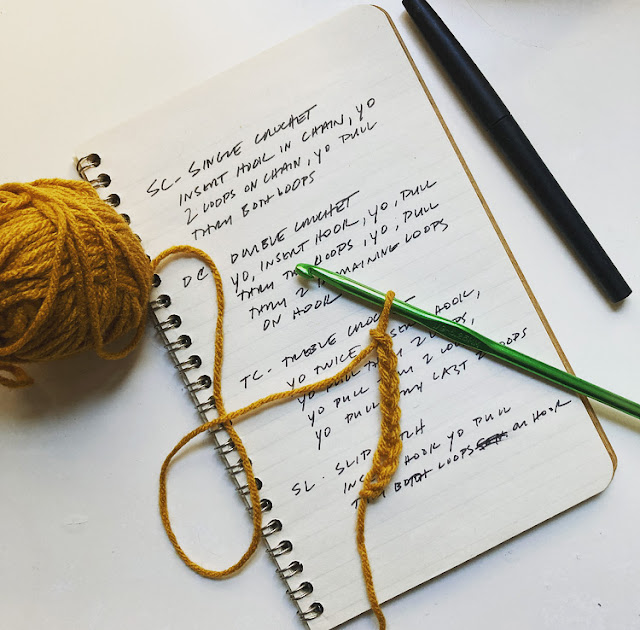 SC - SINGLE CROCHET
INSERT HOOK IN CHAIN, YO
2 LOOPS ON CHAIN, YO PULL
THRU BOTH LOOPS
DC DOUBLE CROCHET
YO, INSERT HOOK, YO, PULL
THRU LOOPS, YO, PULL
THRU 2 REMAINING LOOPS
ON HOOK
TC - TREBLE CROCHET
YO TWICE, INSERT HOOK,
YO PULL THRU 2 LOOPS,
YO PULL THRU 2 LOOPS,
YO PULL LAST 2 LOOPS
SL. SLIP
HOOK YO PULL
BOTH LOOPS ON HOOK